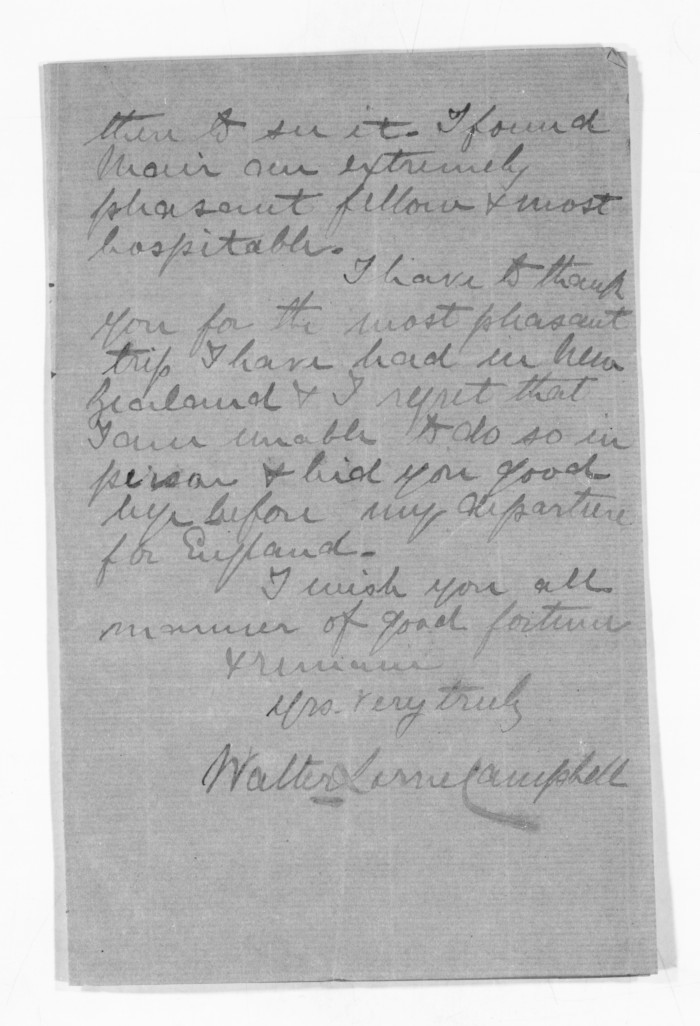 then to see it. I found
Mair an extremely
pleasant fellow & most
hospitable.
I have to thank
you for the most pleasant
trip I have had in New
Zealand & I regret that
I am unable to do so in
person & bid you good
bye before my departure
for England.
I wish you all
manner of good fortune
& remain
yrs. very truly
Walter Lorne Campbell